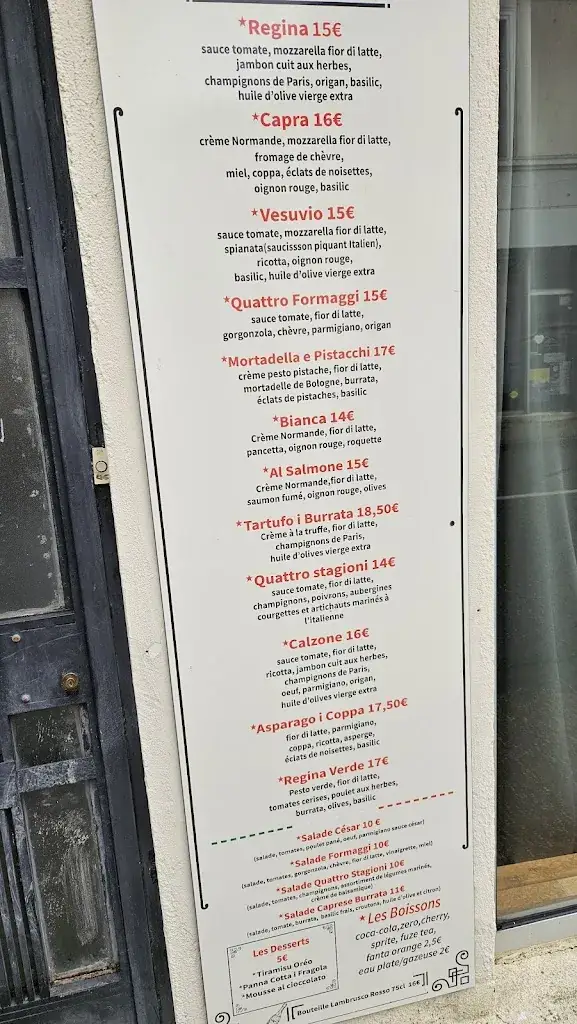 *Regina 15€
sauce tomate, mozzarella fior di latte,
jambon cuit aux herbes,
champignons de Paris, origan, basilic,
huile d'olive vierge extra
*Capra 16€
crème Normande, mozzarella fior di latte,
fromage de chèvre,
miel, coppa, éclats de noisettes,
oignon rouge, basilic
*Vesuvio 15€
sauce tomate, mozzarella fior di latte,
spianata(saucissson piquant Italien),
ricotta, oignon rouge,
basilic, huile d'olive vierge extra
*Quattro Formaggi 15€
sauce tomate, fior di latte,
gorgonzola, chèvre, parmigiano, origan
*Mortadella e Pistacchi 17€
crème pesto pistache, fior di latte,
mortadelle de Bologne, burrata,
éclats de pistaches, basilic
*Bianca 14€
Crème Normande, fior di latte,
pancetta, oignon rouge, roquette
*Al Salmone 15€
Crème Normande,fior di latte,
saumon fumé, oignon rouge, olives
*Tartufo i Burrata 18,50€
Crème à la truffe, fior di latte,
champignons de Paris,
huile d'olives vierge extra
*Quattro stagioni 14€
sauce tomate, fior di latte,
champignons, poivrons, aubergines
courgettes et artichauts marinés à
l'italienne
*Calzone 16€
sauce tomate, fior di latte,
ricotta, jambon cuit aux herbes,
champignons de Paris,
oeuf, parmigiano, origan,
huile d'olives vierge extra
*Asparago i Coppa 17,50€
fior di latte, parmigiano,
coppa, ricotta, asperge,
éclats de noisettes, basilic
*Regina Verde 17€
Pesto verde, fior di latte,
tomates cerises, poulet aux herbes,
burrata, olives, basilic
*Salade César 10 €
(salade, tomates, poulet pané, oeuf, parmigiano sauce césar)
*Salade Formaggi 10€
(salade, tomates, gorgonzola, chèvre, fior di latte, vinaigrette, miel)
*Salade Quattro Stagioni 10€
(salade, tomates, champignons, assortiment de légumes marinés,
crème de balsamique)
*Salade Caprese Burrata 11€
(salade, tomate, burrata, basilic frais, croutons, huile d'olive et citron)
Les Desserts
5€
*Tiramisu Oréo
*Panna Cotta i Fragola
*Mousse al cioccolato
*Les Boissons
coca-cola,zero,cherry,
sprite, fuze tea,
fanta orange 2,5€
eau plate/gazeuse 2€
Bouteille Lambrusco Rosso 75cl 16€